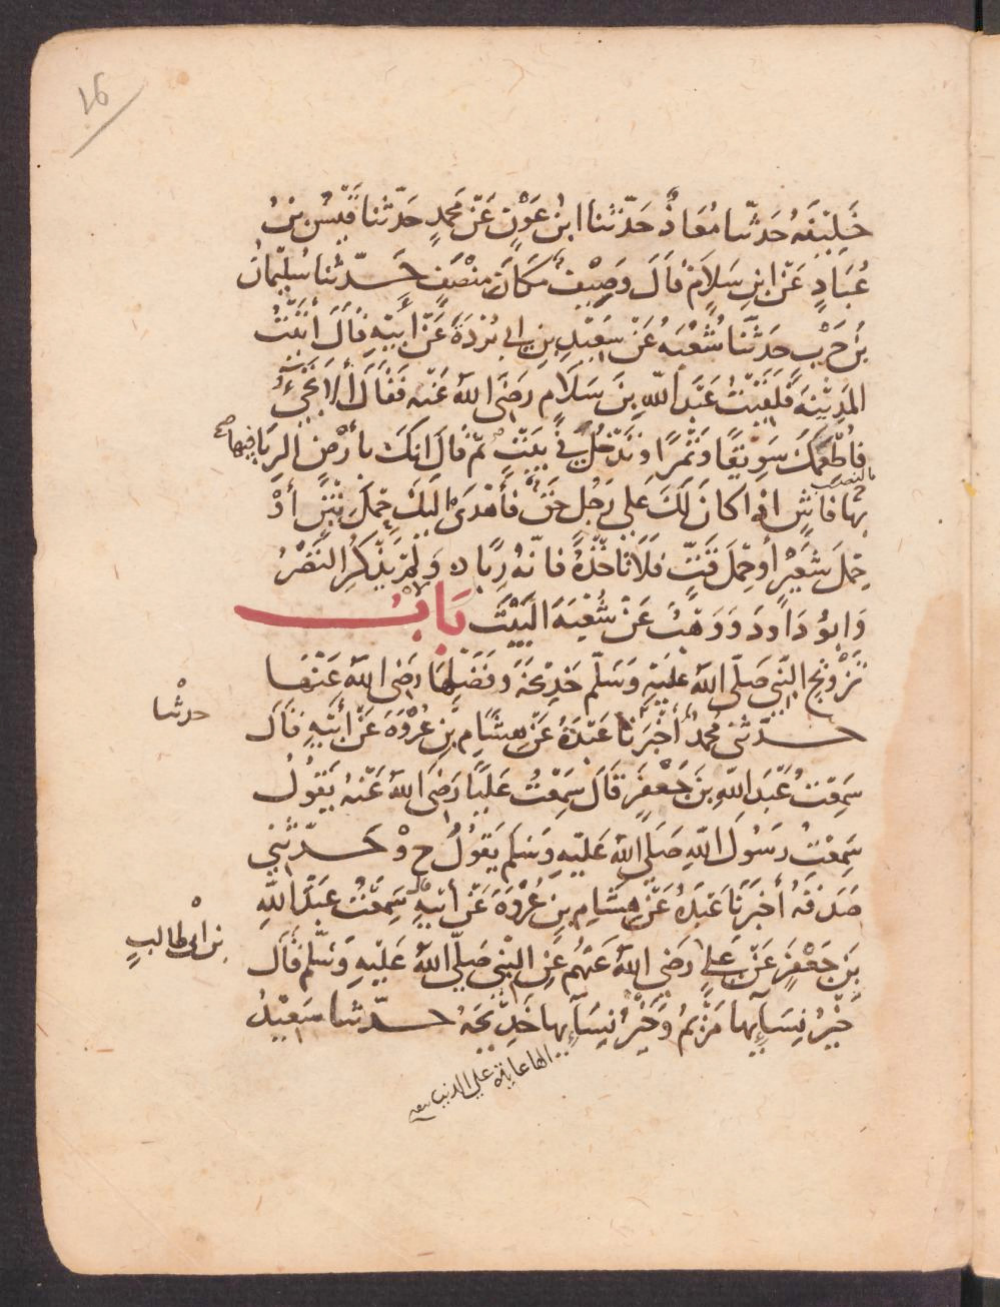 16
خَلِيْفَةُ حَدَثَنا مُعَاذٌ حَدّثَنَا ابنُ عَوْنٍ عَنْ مُحَمدٍ حَدّثنا قَيْسُ بنُ
عُبَادٍ عَنْ ابنِ سَلَامٍ قَالَ وَصِيْفٌ مَكَانَ مِنْصَفٍ حَدّثنا سُلَيْمَانُ
بنُ حَرْبٍ حَدثَنا شُعْبَةُ عَنْ سَعِيْدِ بنِ ابي بُرْدَةَ عَنْ أَبِيْهِ قَالَ أَتَيْتُ
المَدِيْنَةَ فَلَقِيْتُ عَبْدَ اللّهِ بنَ سَلَامٍ رَضِيَ اللّهُ عَنْه فَقَالَ أَلَا تَجِيْءُ
فأُطْعِمَكَ سَوِيْقًا وَتَمْرًا وتَدْخُلَ فِي بَيْتٍ ثُمّ قَالَ انكَ بأَرْضٍ الرِبَا فيها
بالنصب
بهَا فَاشٍ اذا كانَ لَكَ عَلى رَجُلٍ حَقٌ فَأَهْدَى الَيْكَ حِمْلَ تِبْنٍ أَوْ
حِمْلَ شَعِيْرٍ أوحِمْلَ قَتٍّ فَلَا تَاخُذْهُ فانّهُ رِبًا ه وَلَمْ يَذْكُرِ النَضْرُ
وَابوُ دَاودَ وَوَهْبٌ عَنْ شُعْبَةَ البَيْتَ بَابُ
تَزْوِيْجِ النّبيِ صَلّى اللّهُ عَلَيْهِ وَسَلّم خَدِيْجَةَ وَفَضْلِهَا رَضِيَ اللّهُ عَنْهَا
حدّثني مُحمدٌ أَخْبَرَنَا عَبْدَةُ عَنْ هِشَامِ بْنِ عُرْوَةَ عَنْ أَبِيْهِ قَالَ
حدثنا
سَمِعْتُ عَبْدَ اللّهِ بنَ جَعْفَرٍ قَالَ سَمِعْتُ عَلِيًّا رَضِيَ اللّهُ عَنْهُ يَقُولُ
سَمِعْتُ رَسُولَ اللّهِ صَلّى اللّهُ عَلَيْهِ وَسَلّم يَقُولُ ح وْحَدّثَنِي
صَدَقَةُ أَخْبَرَنَا عَبْدَةُ عَنْ هِشَامِ بنِ عُرْوَةَ عَنْ أَبِيْهِ سَمِعْتُ عَبْدَ اللّهِ
بنَ جَعْفَرٍ عَنْ عَلِيٍ رَضِيَ اللّهُ عَنْهُمْ عَنِ النّبيِ صَلّى اللّهُ عَلَيْهِ وَسَلّم قَالَ
بن ابي طالبٍ
خَيْرُ نِسَآئِهَا مَرْيَمُ وَخَيْرُ نِسَآئِهَا خَدِيْجَةُ حدّثنا سَعِيْدُ